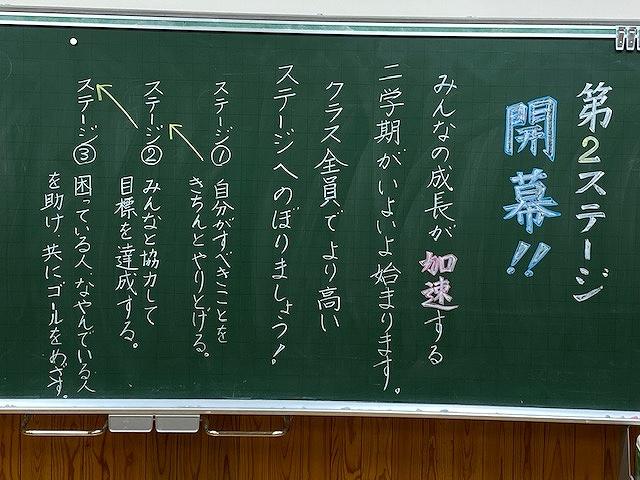 第2ステージ
開幕!!
みんなの成長が加速する
二学期がいよいよ始まります。
クラス全員でより高い
ステージへのぼりましょう!
ステージ① 自分がすべきことを
きちんとやりとげる。
ステージ② みんなと協力して
目標を達成する。
ステージ③ 困っている人、なやんでいる人
を助け 共にゴールをめざす。